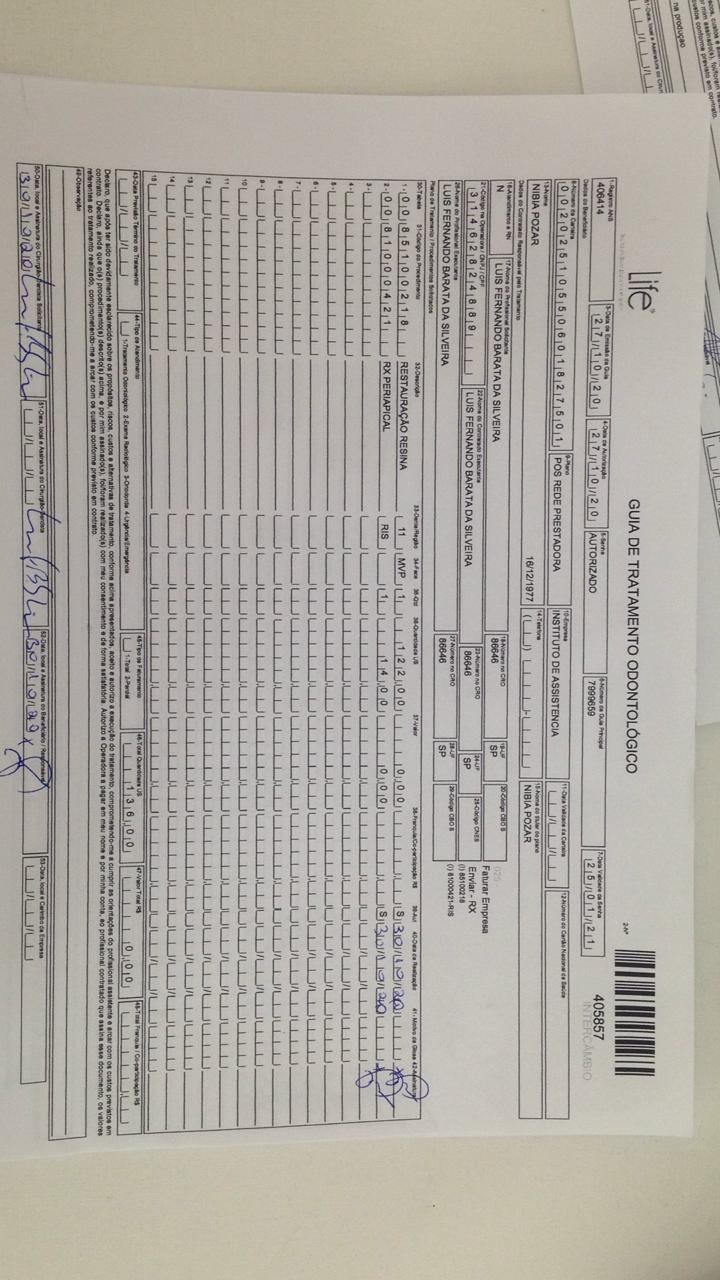 Life
GUIA DE TRATAMENTO ODONTOLÓGICO
2-Nº
405857
INTERCÂMBIO
1-Registro ANS
406414
3-Data de Emissão da Guia
27/10/20
4-Data de Autorização
27/10/20
5-Senha
AUTORIZADO
6-Número da Guia Principal
7999659
7-Data Validade da Senha
25/01/21
Dados do Beneficiário
8-Número da Carteira
00202510550601827501
9-Plano
POS REDE PRESTADORA
10-Empresa
INSTITUTO DE ASSISTENCIA
11-Data Validade da Carteira
12-Número do Cartão Nacional de Saúde
13-Nome
NIBIA POZAR
16/12/1977
14-Telefone
15-Nome do titular do plano
NIBIA POZAR
Dados do Contratado Responsável pelo Tratamento
16-Atendimento a RN
N
17-Nome do Profissional Solicitante
LUIS FERNANDO BARATA DA SILVEIRA
18-Número no CRO
86646
19-UF
SP
20-Código CBO S
025
Faturar Empresa
Enviar - RX
(I) 85100218
(I) 81000421-RIS
21-Código na Operadora / CNPJ / CPF
31462824889
22-Nome do Contratado Executante
LUIS FERNANDO BARATA DA SILVEIRA
23-Número no CRO
86646
24-UF
SP
25-Código CNES
26-Nome do Profissional Executante
LUIS FERNANDO BARATA DA SILVEIRA
27-Número no CRO
86646
28-UF
SP
29-Código CBO S
Plano de Tratamento / Procedimentos Solicitados
30-Tabela 31-Código do Procedimento 32-Descrição 33-Dente/Região 34-Face 35-Qtd 36-Quantidade US 37-Valor 38-Franquia/Co-participação R$ 39-Aut 40-Data de Realização 41 - Motivo da Glosa 42-Assinatura
1- 00 85100218 RESTAURAÇÃO RESINA 11 MVP 1 122,00 0,00 S 30/10/20
2- 00 81000421 RX PERIAPICAL RIS 1 14,00 0,00 S 30/10/20
3-
4-
5-
6-
7-
8-
9-
10
11
12
13
14
15
43-Data Previsão Término do Tratamento
44-Tipo de Atendimento
1-Tratamento Odontológico 2-Exame Radiológico 3-Ortodontia 4-Urgência/Emergência
45-Tipo de Faturamento
1-Total 2-Parcial
46-Total Quantidade US
136,00
47-Valor Total R$
0,00
48-Total Franquia / Co-participação R$
Declaro, que após ter sido devidamente esclarecido sobre os propósitos, riscos, custos e alternativas de tratamento, conforme acima apresentados, aceito e autorizo a execução do tratamento, comprometendo-me a cumprir as orientações do profissional assistente e arcar com os custos previstos em
contrato. Declaro, ainda que o(s) procedimento(s) descrito(s) acima, e por mim assinado(s), foi/foram realizado(s) com meu consentimento e de forma satisfatória. Autorizo a Operadora a pagar em meu nome e por minha conta, ao profissional contratado que assina esse documento, os valores
referentes ao tratamento realizado, comprometendo-me a arcar com os custos conforme previsto em contrato.
49-Observação
50-Data, local e Assinatura do Cirurgião-Dentista Solicitante
30/10/20
51-Data, local e Assinatura do Cirurgião-Dentista
52-Data, local e Assinatura do Beneficiário / Responsável
30/10/20
53-Data, local e Carimbo da Empresa
na produção